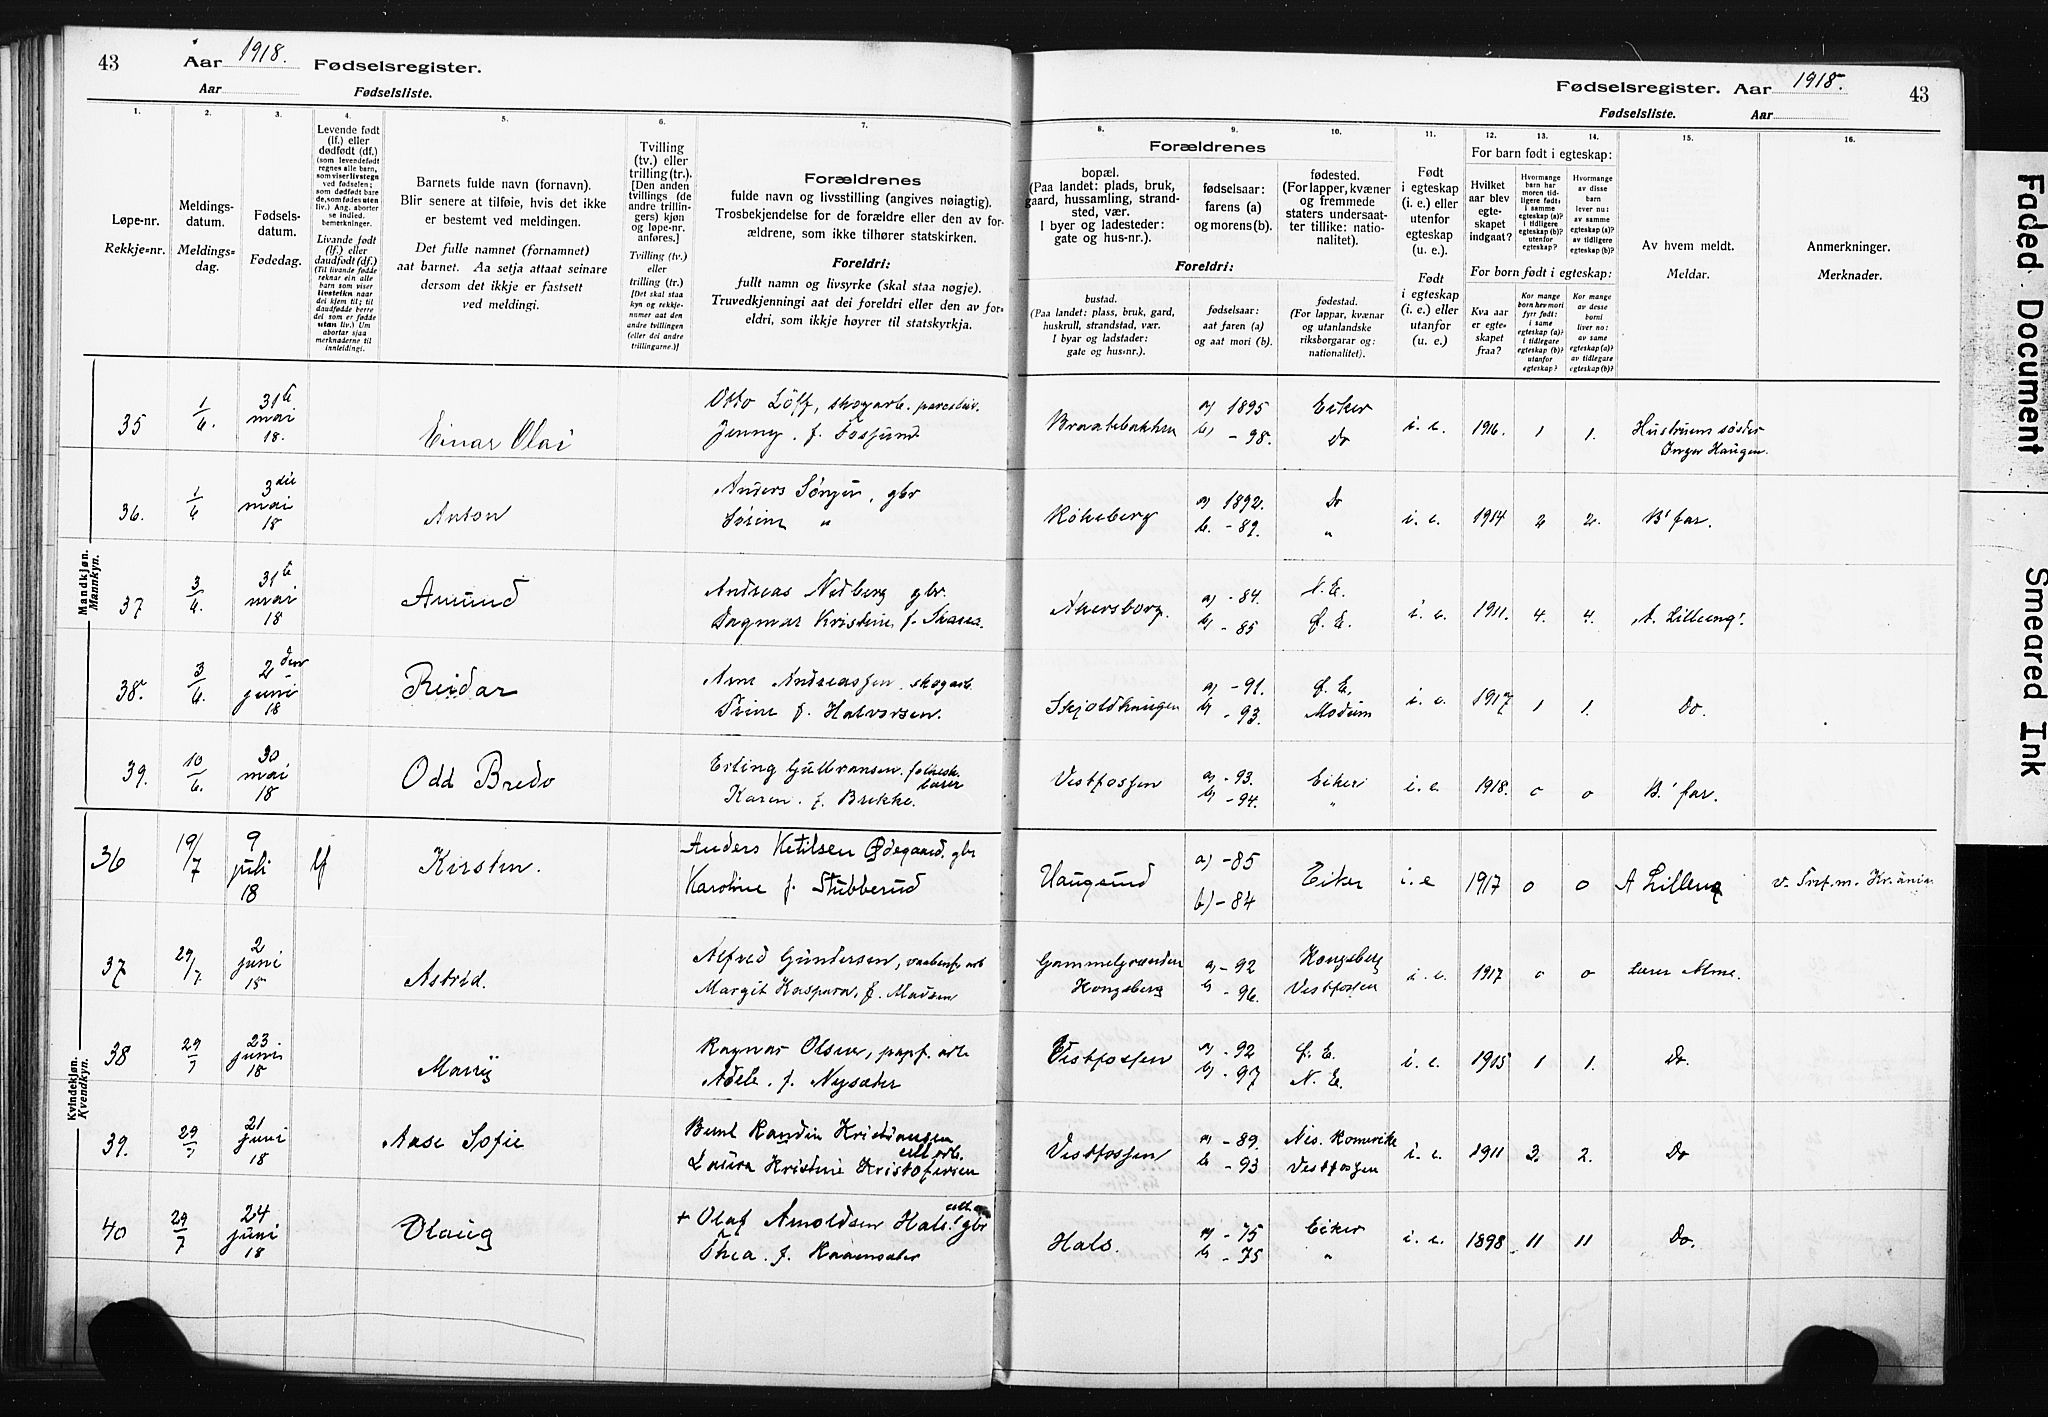 43 Aar 1918. Fødselsregister.
Aar Fødselsliste.
Fødselsregister. Aar 1918. 43
Fødselsliste. Aar
1. 2. 3. 4. 5. 6. 7. 8. 9. 10. 11. 12. 13. 14. 15. 16.
Løpe-nr.
Rekkje=nr.
Meldings-
datum.
Meldings=
dag.
Fødsels-
datum.
Fødedag.
Levende født
(lf.) eller
dødfødt (df.)
(som levendefødt
regnes alle barn,
som viser livstegn
ved fødselen;
som dødfødt bare
de, som fødes uten
liv.) Ang. aborter
se indled.
bemerkninger.
Livande født
(lf.) eller
daudfødt (df.)
(Til livande fødde
reknar ein alle
barn som viser
livsteikn naar
dei kjem til; til
daudfødde berre
dei som er fødde
utan liv.) Um
abortar sjaa
merknaderne til
innleidingi.
Barnets fulde navn (fornavn).
Blir senere at tilføie, hvis det ikke
er bestemt ved meldingen.
Det fulle namnet (fornamnet)
aat barnet. Aa setja attaat seinare
dersom det ikkje er fastsett
ved meldingi.
Tvilling
(tv.) eller
trilling (tr.).
[Den anden
tvillings (de
andre trillin-
gers) kjøn
og løpe-nr.
anføres.]
Tvilling (tv.)
eller
trilling (tr.)
[Det skal staa
kyn og rekkje-
numer aat den
andre tvillingen
(eller dei andre
trillingarne.)]
Forældrenes
fulde navn og livsstilling (angives nøiagtig).
Trosbekjendelse for de forældre eller den av for-
ældrene, som ikke tilhører statskirken.
Foreldri:
fullt namn og livsyrke (skal staa nøgje).
Truvedkjenningi aat dei foreldri eller den av for-
eldri, som ikkje høyrer til statskyrkja.
Forældrenes
bopæl.
(Paa landet: plads, bruk,
gaard, hussamling, strand-
sted, vær.
I byer og ladesteder:
gate og hus-nr.).
fødselsaar:
farens (a)
og morens (b).
fødested.
(For lapper, kvæner
og fremmede
staters undersaat-
ter tillike: natio-
nalitet).
Foreldri:
bustad.
(Paa landet: plass, bruk, gard,
huskrull, strandstad, vær.
I byar og ladstader:
gate og hus=nr.).
fødselsaar:
aat faren (a)
og aat mori (b).
fødestad.
(For lappar, kvænar
og utanlandske
riksborgarar og:
nationalitet).
Født
i egteskap
(i. e.) eller
utenfor
egteskap
(u. e.).
Født
i egteskap
(i. e.) eller
utanfor
(u. e.)
For barn født i egteskap:
Hvilket
aar blev
egte-
skapet
indgaat?
Hvormange
barn har
moren tid-
ligere født:
i samme
egteskap (a)?
i tidligere
egteskap (b)?
utenfor
egteskap?
Hvormange
av disse
barn
lever nu:
av samme
egteskap (a)?
av tidligere
egteskap (b)?
For born født i egteskap:
Kva aar
er egte-
skapet
fraa?
Kor mange
born hev mori
fyrr født:
i same
egteskap (a)?
i tidlegare
egteskap (b)?
utanfor
egteskap?
Kor mange
av desse
borni
liver no:
av same
egteskap (a)?
av tidlegare
egteskap (b)?
Av hvem meldt.
Meldar.
Anmerkninger.
Merknader.
Mandkjøn.
Mannkyn.
35 1/6. 31te mai 18. Einar Olai Otto Löff, skogarb.
Jenny. f. Fossund
a) 1895 Eiker
b) - 98. Do i. e. 1916. 1 1. Hustruens søster
Inger Haugen.
36. 1/6 3die mai 18 Anton Anders
"
a) 1892. Do
b. - 89. " i. e. 1914 2 2. B' far.
37 3/6. 31te mai 18 Amund Andreas gbr.
Dagmar Kristine f.
a) - 84. N. E.
b) - 85 Ø. E. i. e. 1911. 4. 4. A. Lilleeng'.
38. 3/6. 2den juni 18 Reidar Arne Andreassen. skogarb.
Trine f. Halvorsen.
Skjoldhaugen a) - 91. Ø. E.
b) - 93. Modum i. e. 1917 1 1. Do.
39. 10/6. 30 mai 18 Odd Bredo Erling Gulbransen.
Karen. f. Brekke.
Vestfossen a) - 93. Eiker
b) - 94. " i. e. 1918. 0 0 B.' far.
Kvindekjøn.
Kvendkyn.
36 19/7 9 juli 18 lf Kirsten. Anders Ketilsen Ødegaard. gbr
Karoline f. Stubberud
Haugsund a) - 85
b) - 84 Eiker i. e 1917 0 0 A Lilleng
37 29/7. 2 juni 18 Astrid. Alfred Gundersen, vaabenf. arb
Margit Kaspara, f. Madsen
Kongsberg a) - 92 Kongsberg
b) - 96. Vestfossen i. e. 1917 0 0 Lærer Alme.
38 29/7 23 juni 18 Ragnar Olsen, papf. arb
Adele. f. Nysæter
Vestfossen a) - 92 Ø. E.
b) - 97 N. E. i. e. 1915 1 1. Do.
39. 29/7 21 juni 18 Aase Sofie Bernt Randin Kristiansen
cell arb.
Laura Kristine Kristofersen
Vestfossen a) - 89. Nes. Romerike
b - 93 Vestfossen i. e. 1911 3. 2. Do
40 29/7 24 juni 18 Olaug + Olaf Arnoldsen Hals. gbr
Thea. f.
Hals. a) - 75 Eiker
b) - 75 " i. e. 1898 11 11 Do.
Faded Document
Smeared Ink